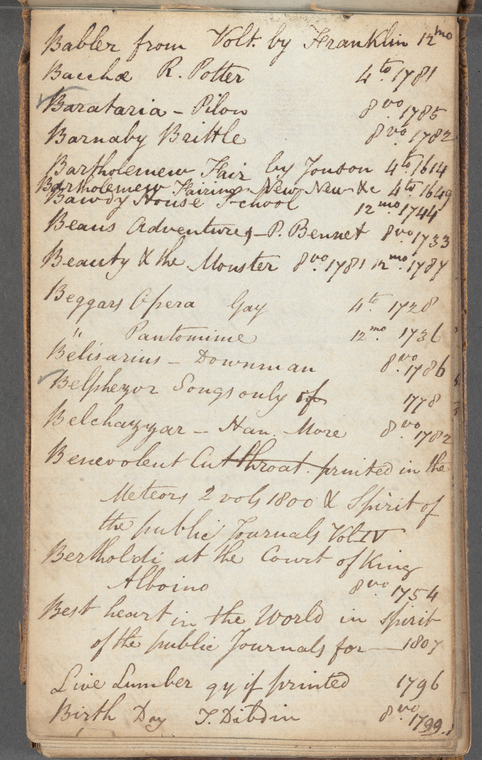 Babler from Volt. by Franklin 12mo
Bacchæ R. Potter 4to 1781
Barataria - Pilon 8vo 1785
Barnaby Brittle 8vo 1782
Bartholemew Fair by Jonson 4to 1614
Bartholemew Fairing New New &c 4to 1649
Bawdy House School 12mo 1744
Beaus Adventures - P. Bennet 8vo 1733
Beauty & the Monster 8vo 1781 12mo 1787
Beggars Opera Gay 4to 1728
" Pantomime 12mo 1736
Belisarius - Downman 8vo 1786
Belphegor Songs only 1778
Belchazzar - Han. More 8vo 1782
Benevolent Cut throat. printed in the
Meteors 2 vols 1800 & Spirit of
the public Journals Vol. IV
Bertholdi at the Court of King
Alboino 8vo 1754
Best heart in the World in Spirit
of the public Journals for - 1807
Live Lumber qy if printed 1796
Birth Day T. Dibdin 8vo 1799.